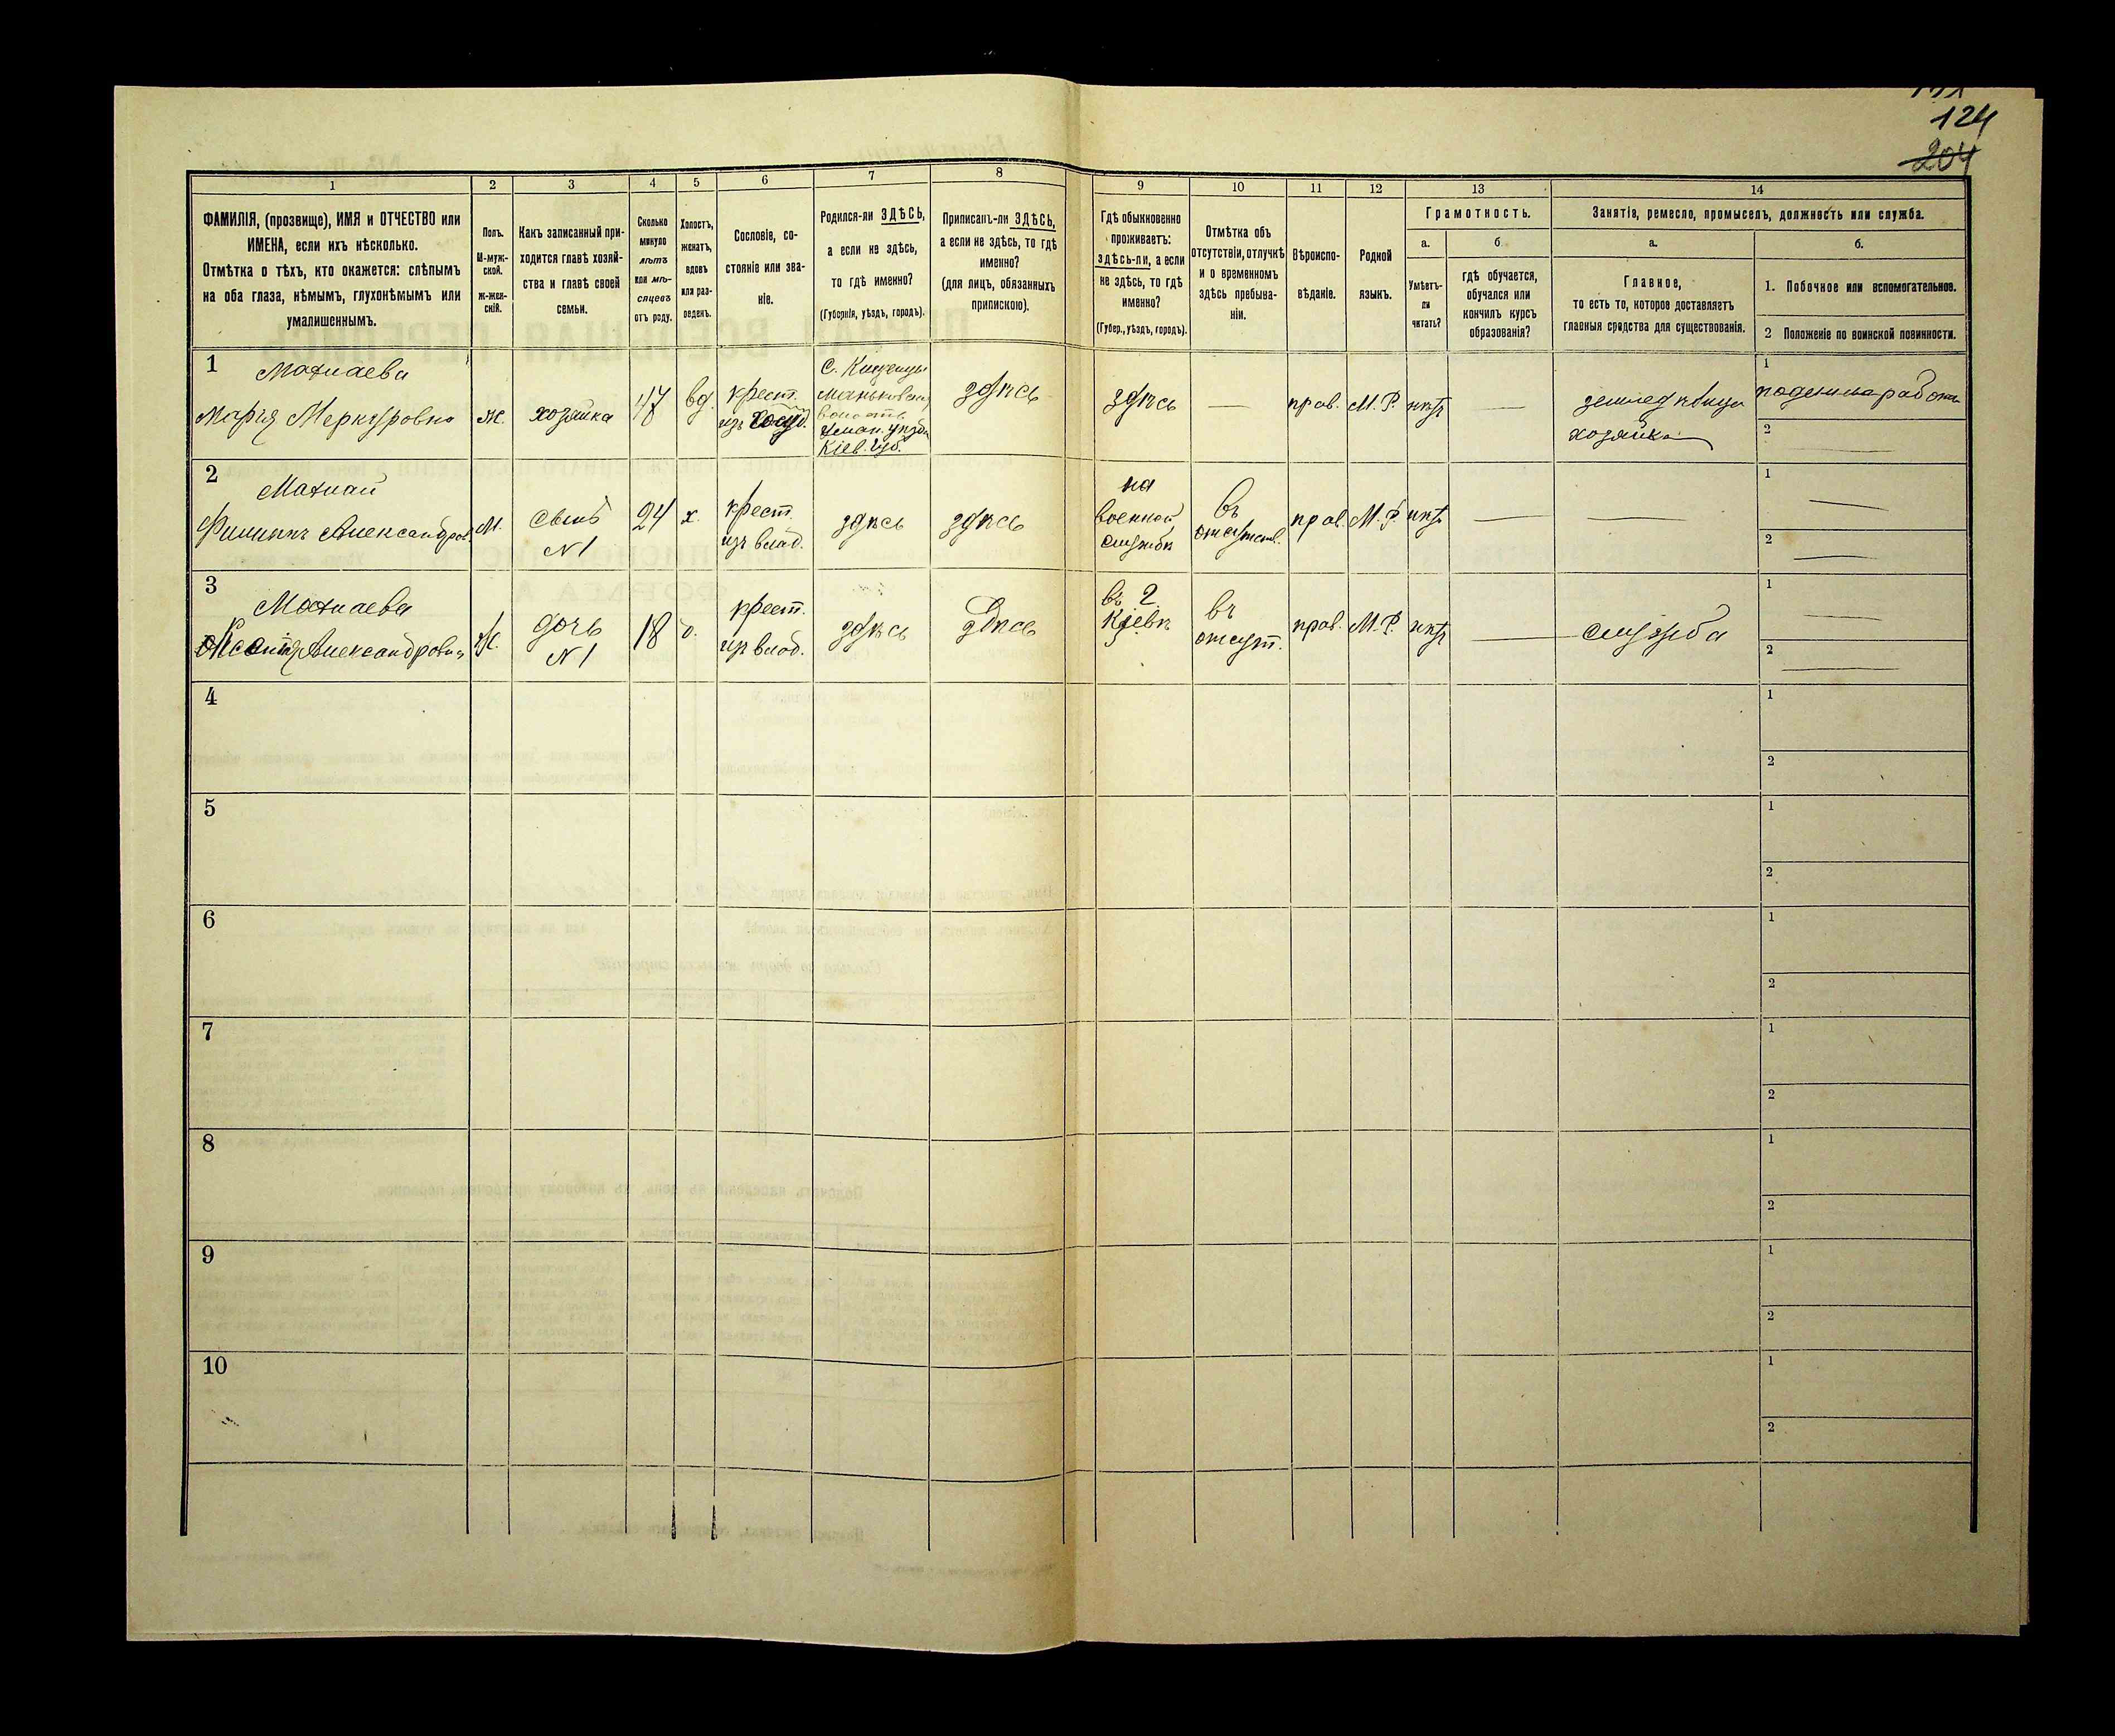 124
204
1
2
3
4
5
6
7
8
9
10
11
12
13
14
ФАМИЛІЯ, (прозвище), ИМЯ и ОТЧЕСТВО или
ИМЕНА, если ихъ нѣсколько.
Отмѣтка о тѣхъ, кто окажется: слѣпымъ
на оба глаза, нѣмымъ, глухонѣмымъ или
умалишеннымъ.
Полъ.
М-муж-
ской.
ж-жен-
скій.
Какъ записанный при-
ходится главѣ хозяй-
ства и главѣ своей
семьи.
Сколько
минуло
лѣтъ
или мѣ-
сяцевъ
отъ роду.
Холостъ,
женатъ,
вдовъ
или раз-
веденъ.
Сословіе, со-
стояніе или зва-
ніе.
Родился-ли ЗДѢСЬ,
а если не здѣсь,
то гдѣ именно?
(Губернія, уѣздъ, городъ).
Приписанъ-ли ЗДѢСЬ,
а если не здѣсь, то гдѣ
именно?
(для лицъ, обязанныхъ
припискою).
Гдѣ обыкновенно
проживаетъ:
здѣсь-ли, а если
не здѣсь, то гдѣ
именно?
(Губер., уѣздъ, городъ).
Отмѣтка объ
отсутствіи, отлучкѣ
и о временномъ
здѣсь пребыва-
ніи.
Вѣроиспо-
вѣданіе.
Родной
языкъ.
Грамотность.
а.
Умѣетъ-
ли
читать?
б.
гдѣ обучается,
обучался или
кончилъ курсъ
образованія?
Занятія, ремесло, промыселъ, должность или служба.
а.
Главное,
то есть то, которое доставляетъ
главныя средства для существованія.
б.
1. Побочное или вспомогательное.
2 Положеніе по воинской повинности.
1
Матиаева
Марія Меркуровна
ж.
хозяйка
47
вд.
крест.
изъ
С.
Уман. уѣзда
Кіев. губ.
здѣсь
здѣсь
—
прав.
М. Р.
нѣтъ
—
земледѣлица
хозяйка
1
поденная работа
2
—
2
Матиай
Филиппъ Александров.
М.
сынъ
N 1
24
х.
крест.
изъ влад.
здѣсь
здѣсь
на
военной
службѣ
въ
отсутств.
прав.
М. Р.
нѣтъ
—
—
1
—
2
—
3
Матиаева
Александровна
Ж.
дочь
N 1
18
д.
крест.
изъ влад.
здѣсь
здѣсь
въ г.
Кіевѣ
въ
отсутт.
прав.
М. Р.
нѣтъ
—
служба
1
—
2
—
4
1
2
5
1
2
6
1
2
7
1
2
8
1
2
9
1
2
10
1
2